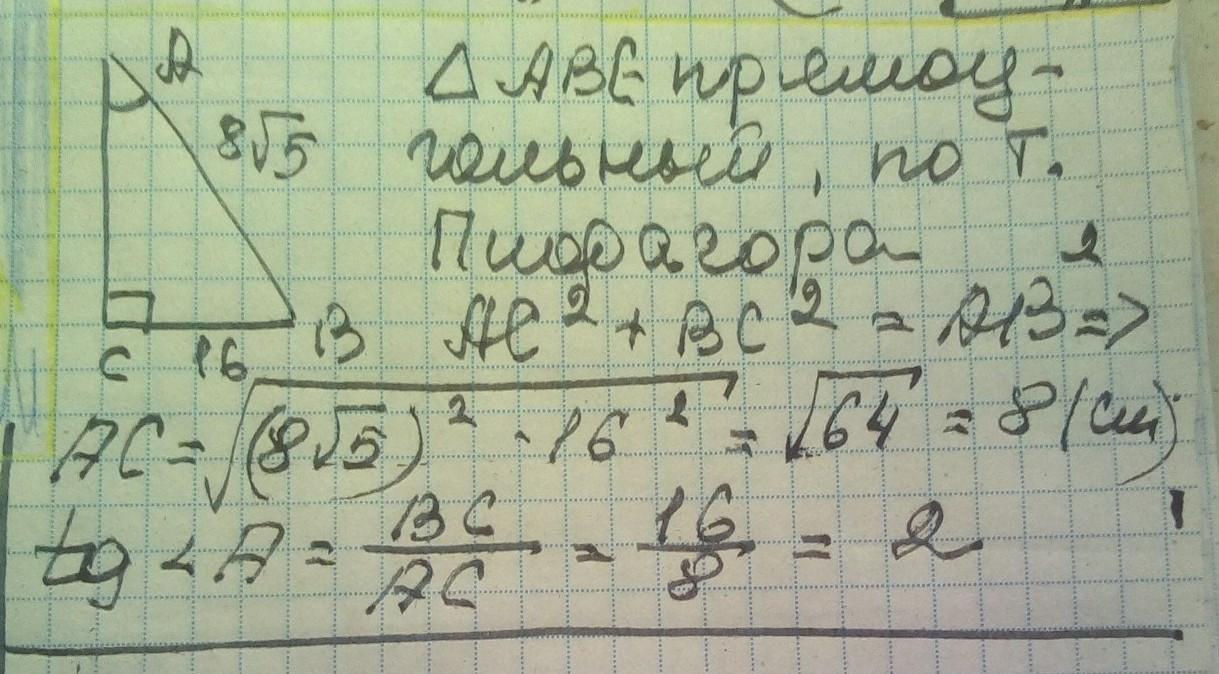 A
8√5
C 16 B
△ ABC прямоу-
гольный, по т.
Пифагора
AC² + BC² = AB² =>
AC = √((8√5)² - 16²) = √64 = 8 (см)
tg ∠A = BC/AC = 16/8 = 2